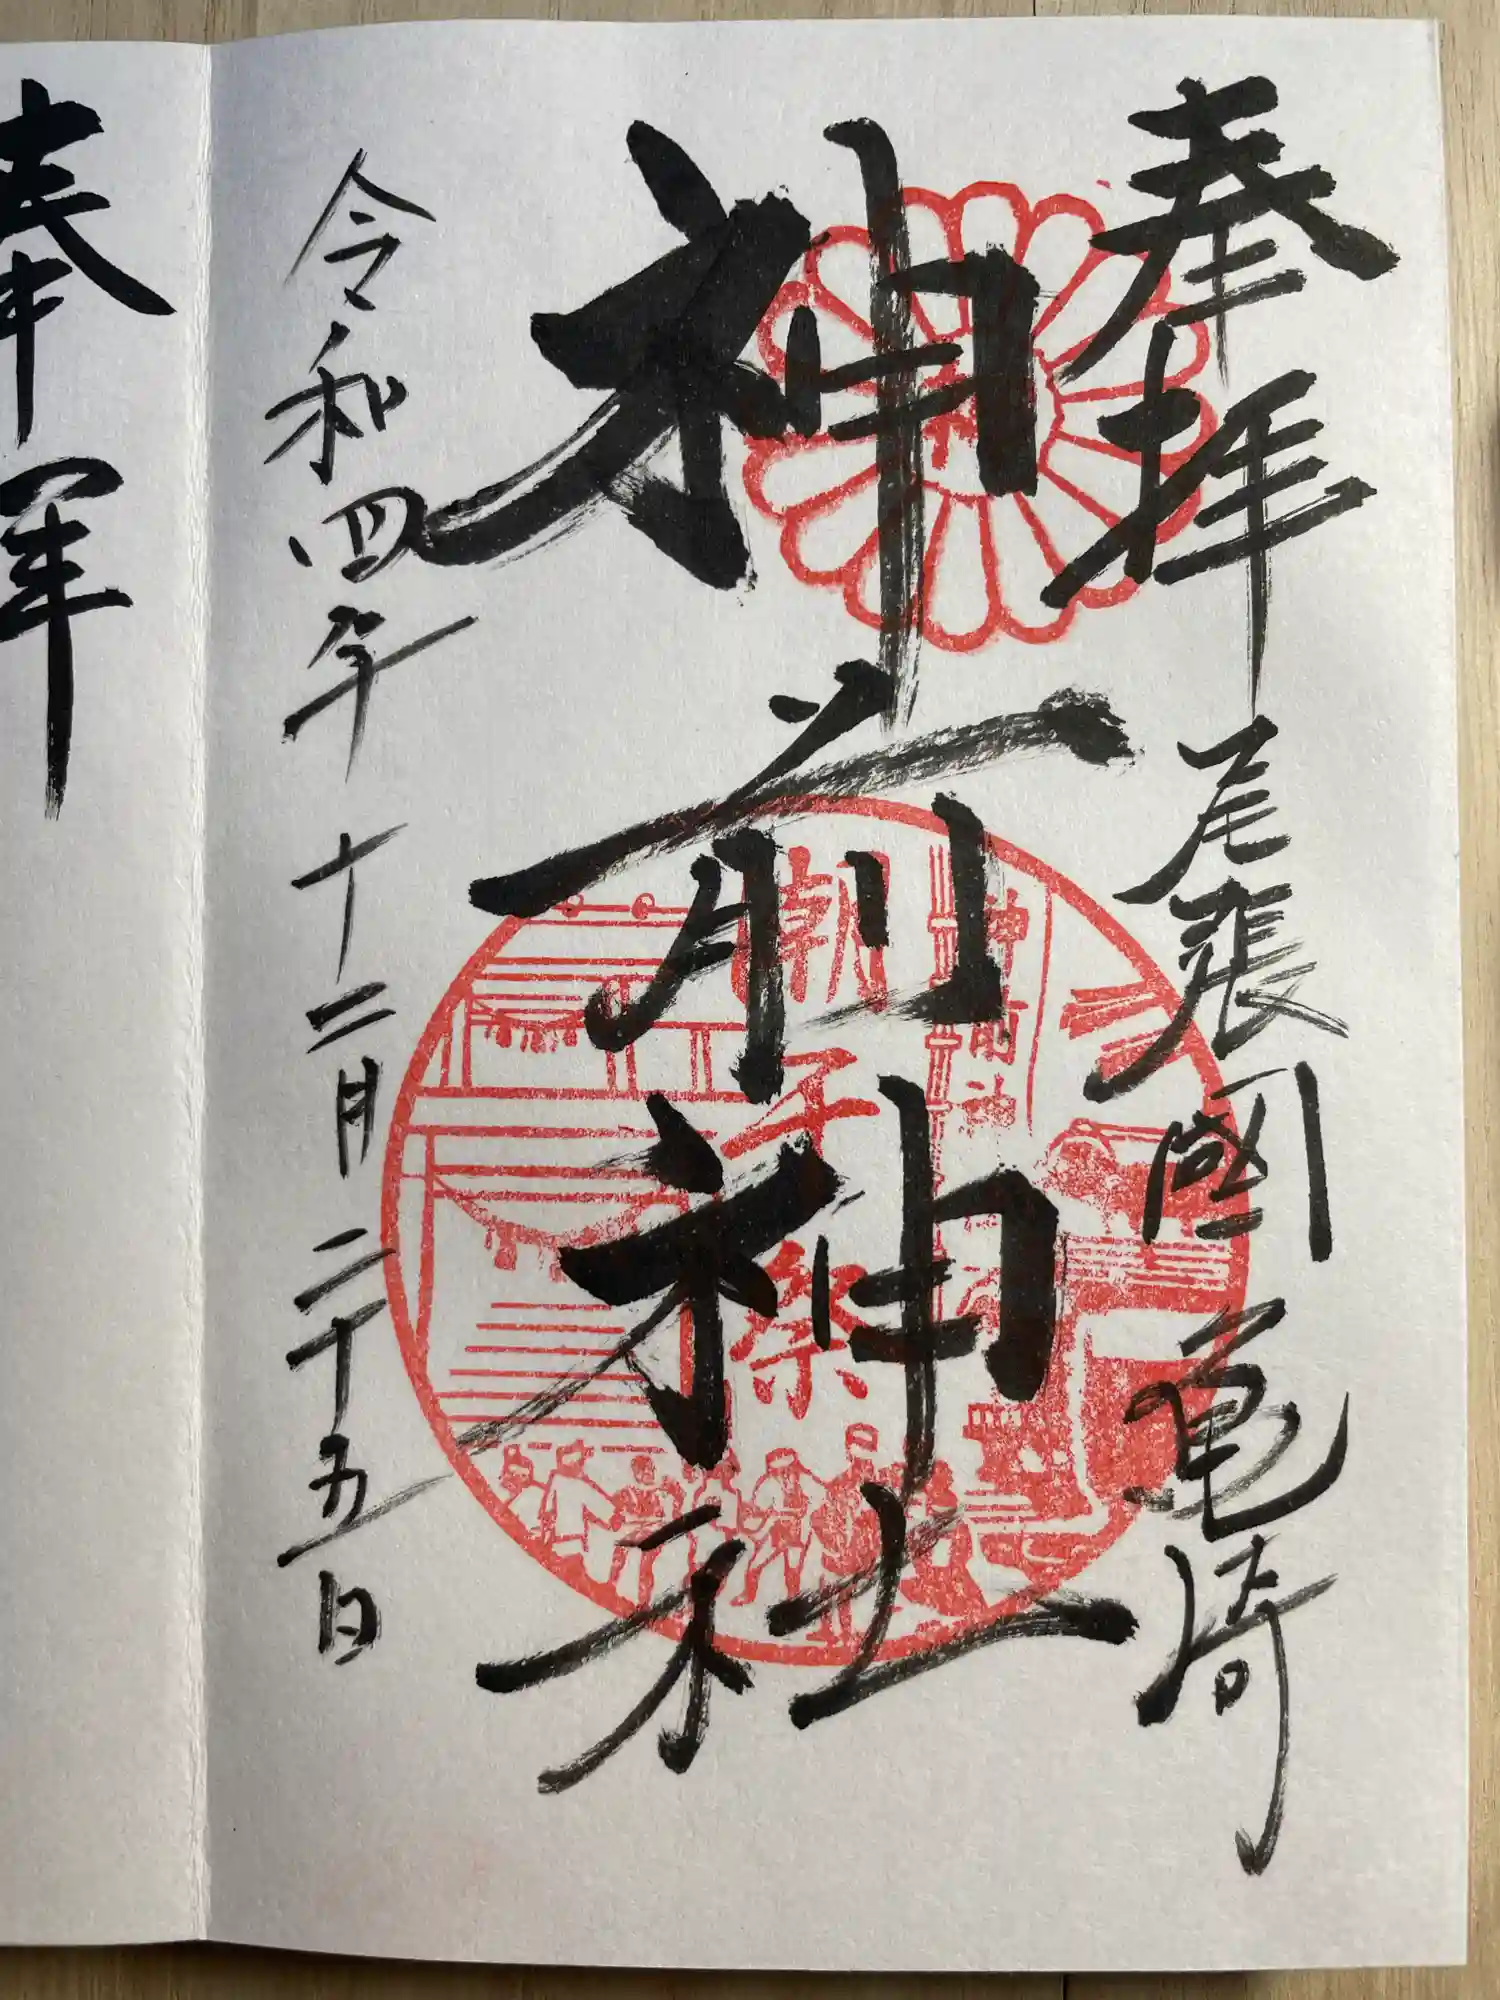 奉拝
尾張國亀崎
神前神社
潮干祭
神前神社
令和四年十二月二十五日
奉拝